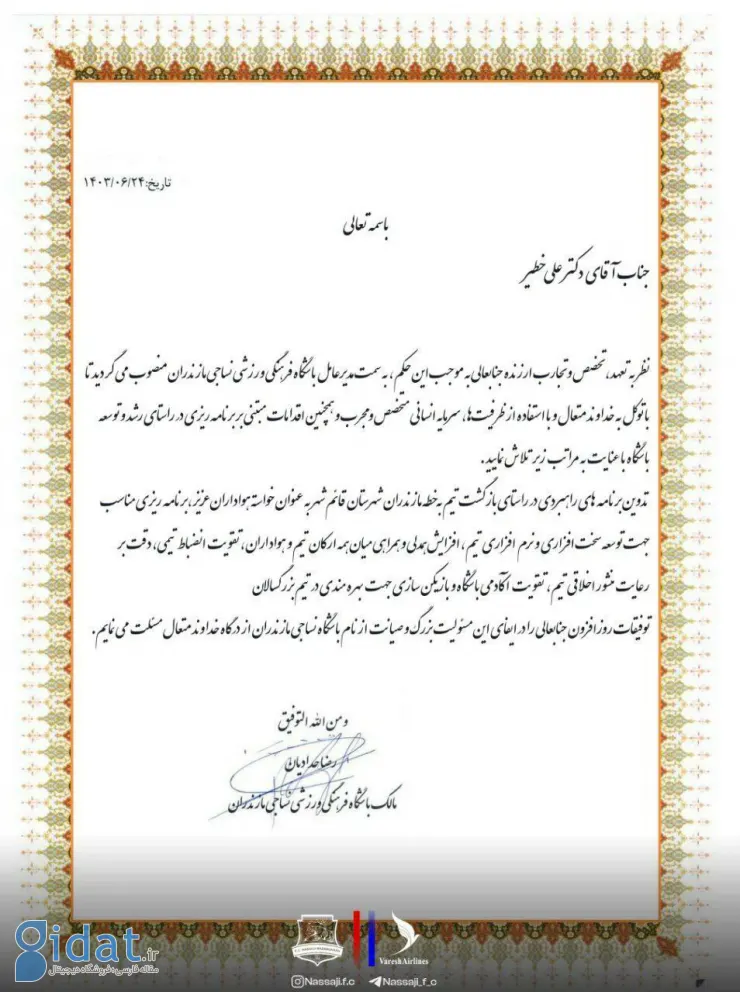 تاریخ:۱۴۰۳/۰۶/۲۴
باسمه تعالی
جناب آقای دکتر علی خطیر
نظر به تعهد، تخصص و تجارب ارزنده جنابعالی به موجب این حکم، به سمت مدیرعامل باشگاه فرهنگی ورزشی نساجی مازندران منصوب می گردید تا
با توکل به خداوند متعال و با استفاده از ظرفیت ها، سرمایه انسانی متخصص و مجرب و همچنین اقدامات مبتنی بر برنامه ریزی در راستای رشد و توسعه
باشگاه با عنایت به مراتب زیر تلاش نمایید.
تدوین برنامه های راهبردی در راستای بازگشت تیم به خطه مازندران شهرستان قائم شهر به عنوان خواسته هواداران عزیز، برنامه ریزی مناسب
جهت توسعه سخت افزاری و نرم افزاری تیم، افزایش همدلی و همراهی میان همه ارکان تیم و هواداران، تقویت انضباط تیمی، دقت بر
رعایت منشور اخلاقی تیم، تقویت آکادمی باشگاه و بازیکن سازی جهت بهره مندی در تیم بزرگسالان
توفیقات روزافزون جنابعالی را در ایفای این مسئولیت بزرگ و صیانت از نام باشگاه نساجی مازندران از درگاه خداوند متعال مسئلت می نمایم.
و من الله التوفیق
رضا حدادیان
مالک باشگاه فرهنگی ورزشی نساجی مازندران
VareshAirlines
Nassaji.f.c
Nassaji_f_c
gidat.ir
مقاله فارسی؛ فروشگاه دیجیتال